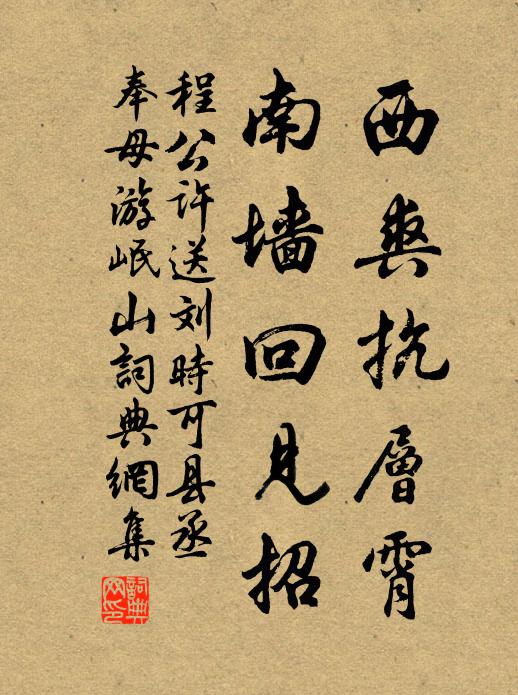 西爽抗層霄
南墙回見招
程公许送刘時可县丞
奉母游岷山詞典網集
詞典网印